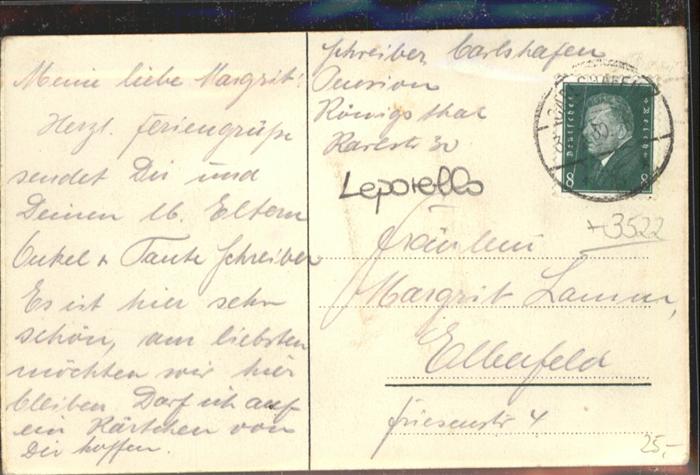 Meine liebe Margrit!
Herzl. Feriengrüße
sendet Dir und
Deinen lb. Eltern
Onkel + Tante Schreiber
Es ist hier sehr
schön, am liebsten
möchten wir hier
bleiben. Darf ich auf
ein Kärtchen von
Dir hoffen.
Schreiber, Carlshafen
Pension
Königsthal
Karlstr 30
Leporello
Deutsches Reich
8 8
+3522
Fräulein
Margrit Lamm,
Elberfeld
Friesenstr 4
25.-